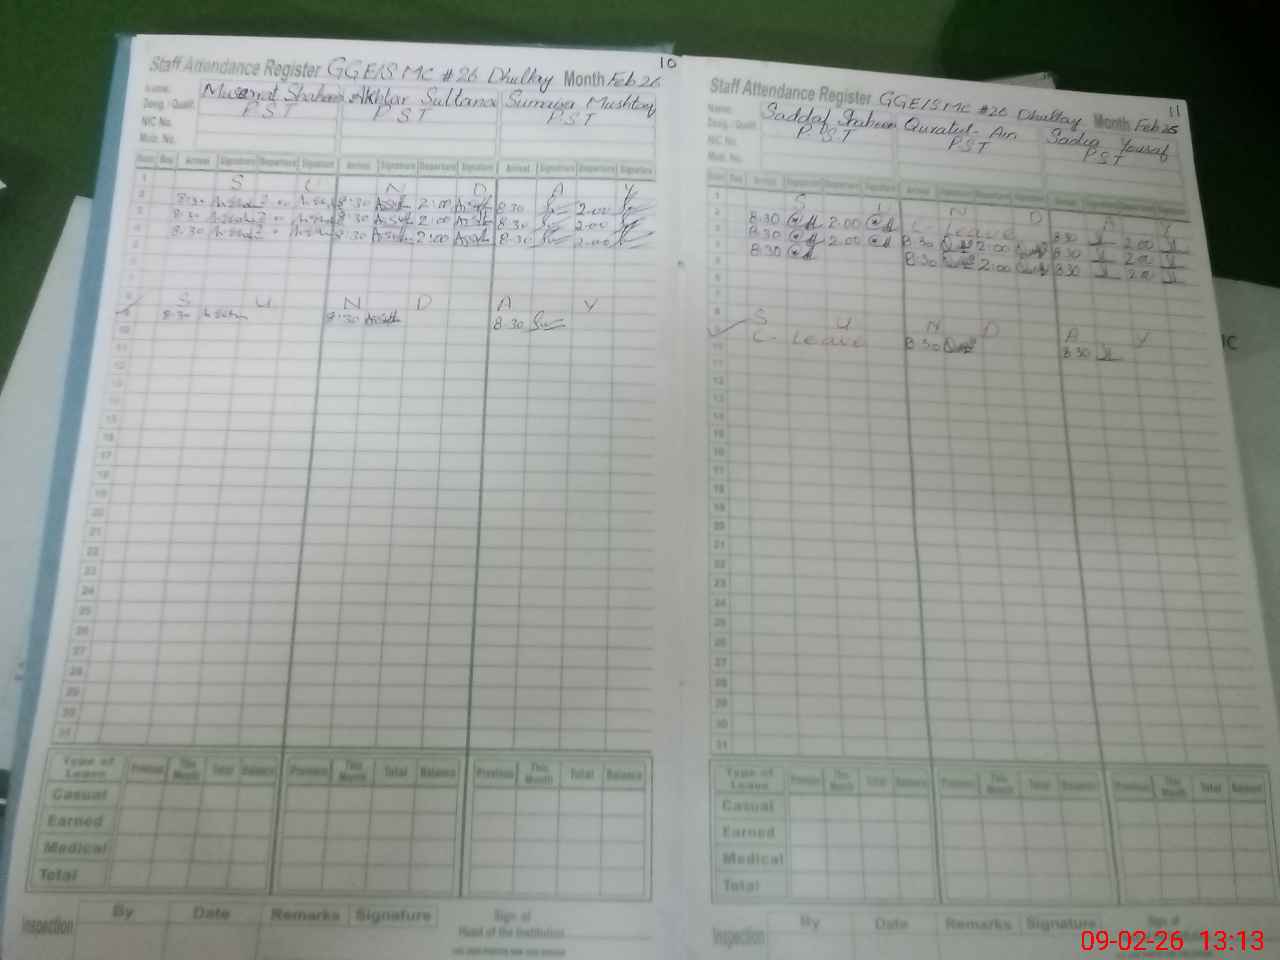 10
Staff Attendance Register GGE/S MC #26 Dhulley Month Feb 26
Name: Musarrat Shaheen Akhtar Sultana Sumaiya Mushtaq
Desig. / Qualif. PST PST PST
NIC No.
Mob. No.
Date Day Arrival Signature Departure Signature Arrival Signature Departure Signature Arrival Signature Departure Signature
1 S U N D A Y
2 8:30 8:30 2:00 8:30 2:00
3 8:30 8:30 2:00 8:30 2:00
4 8:30 8:30 2:00 8:30 2:00
5
8 S U N D A Y
9 8:30 8:30 8:30
10
11
12
13
14
15
16
17
18
19
20
21
22
23
24
25
26
27
28
29
30
31
Type of Leave Previous This Month Total Balance Previous This Month Total Balance Previous This Month Total Balance
Casual
Earned
Medical
Total
Inspection By Date Remarks Signature Sign of Head of the Institution
11
Staff Attendance Register GGE/S MC #26 Dhulley Month Feb 26
Name: Saddaf Shaheen Quratul-Ain Sadia Yousaf
Desig. / Qualif. PST PST PST
NIC No.
Mob. No.
1 S U N D A Y
2 8:30 2:00 C-Leave 8:30 2:00
3 8:30 2:00 8:30 2:00 8:30 2:00
4 8:30 8:30 2:00 8:30 2:00
5
6
7
8 S U N D A Y
C-Leave 8:30 8:30
11
12
13
14
15
16
17
18
19
20
21
22
23
24
25
26
27
28
29
30
31
Type of Leave Previous This Month Total Balance Previous This Month Total Balance Previous This Month Total Balance
Casual
Earned
Medical
Total
Inspection By Date Remarks Signature Sign of Head of the Institution
09-02-26 13:13